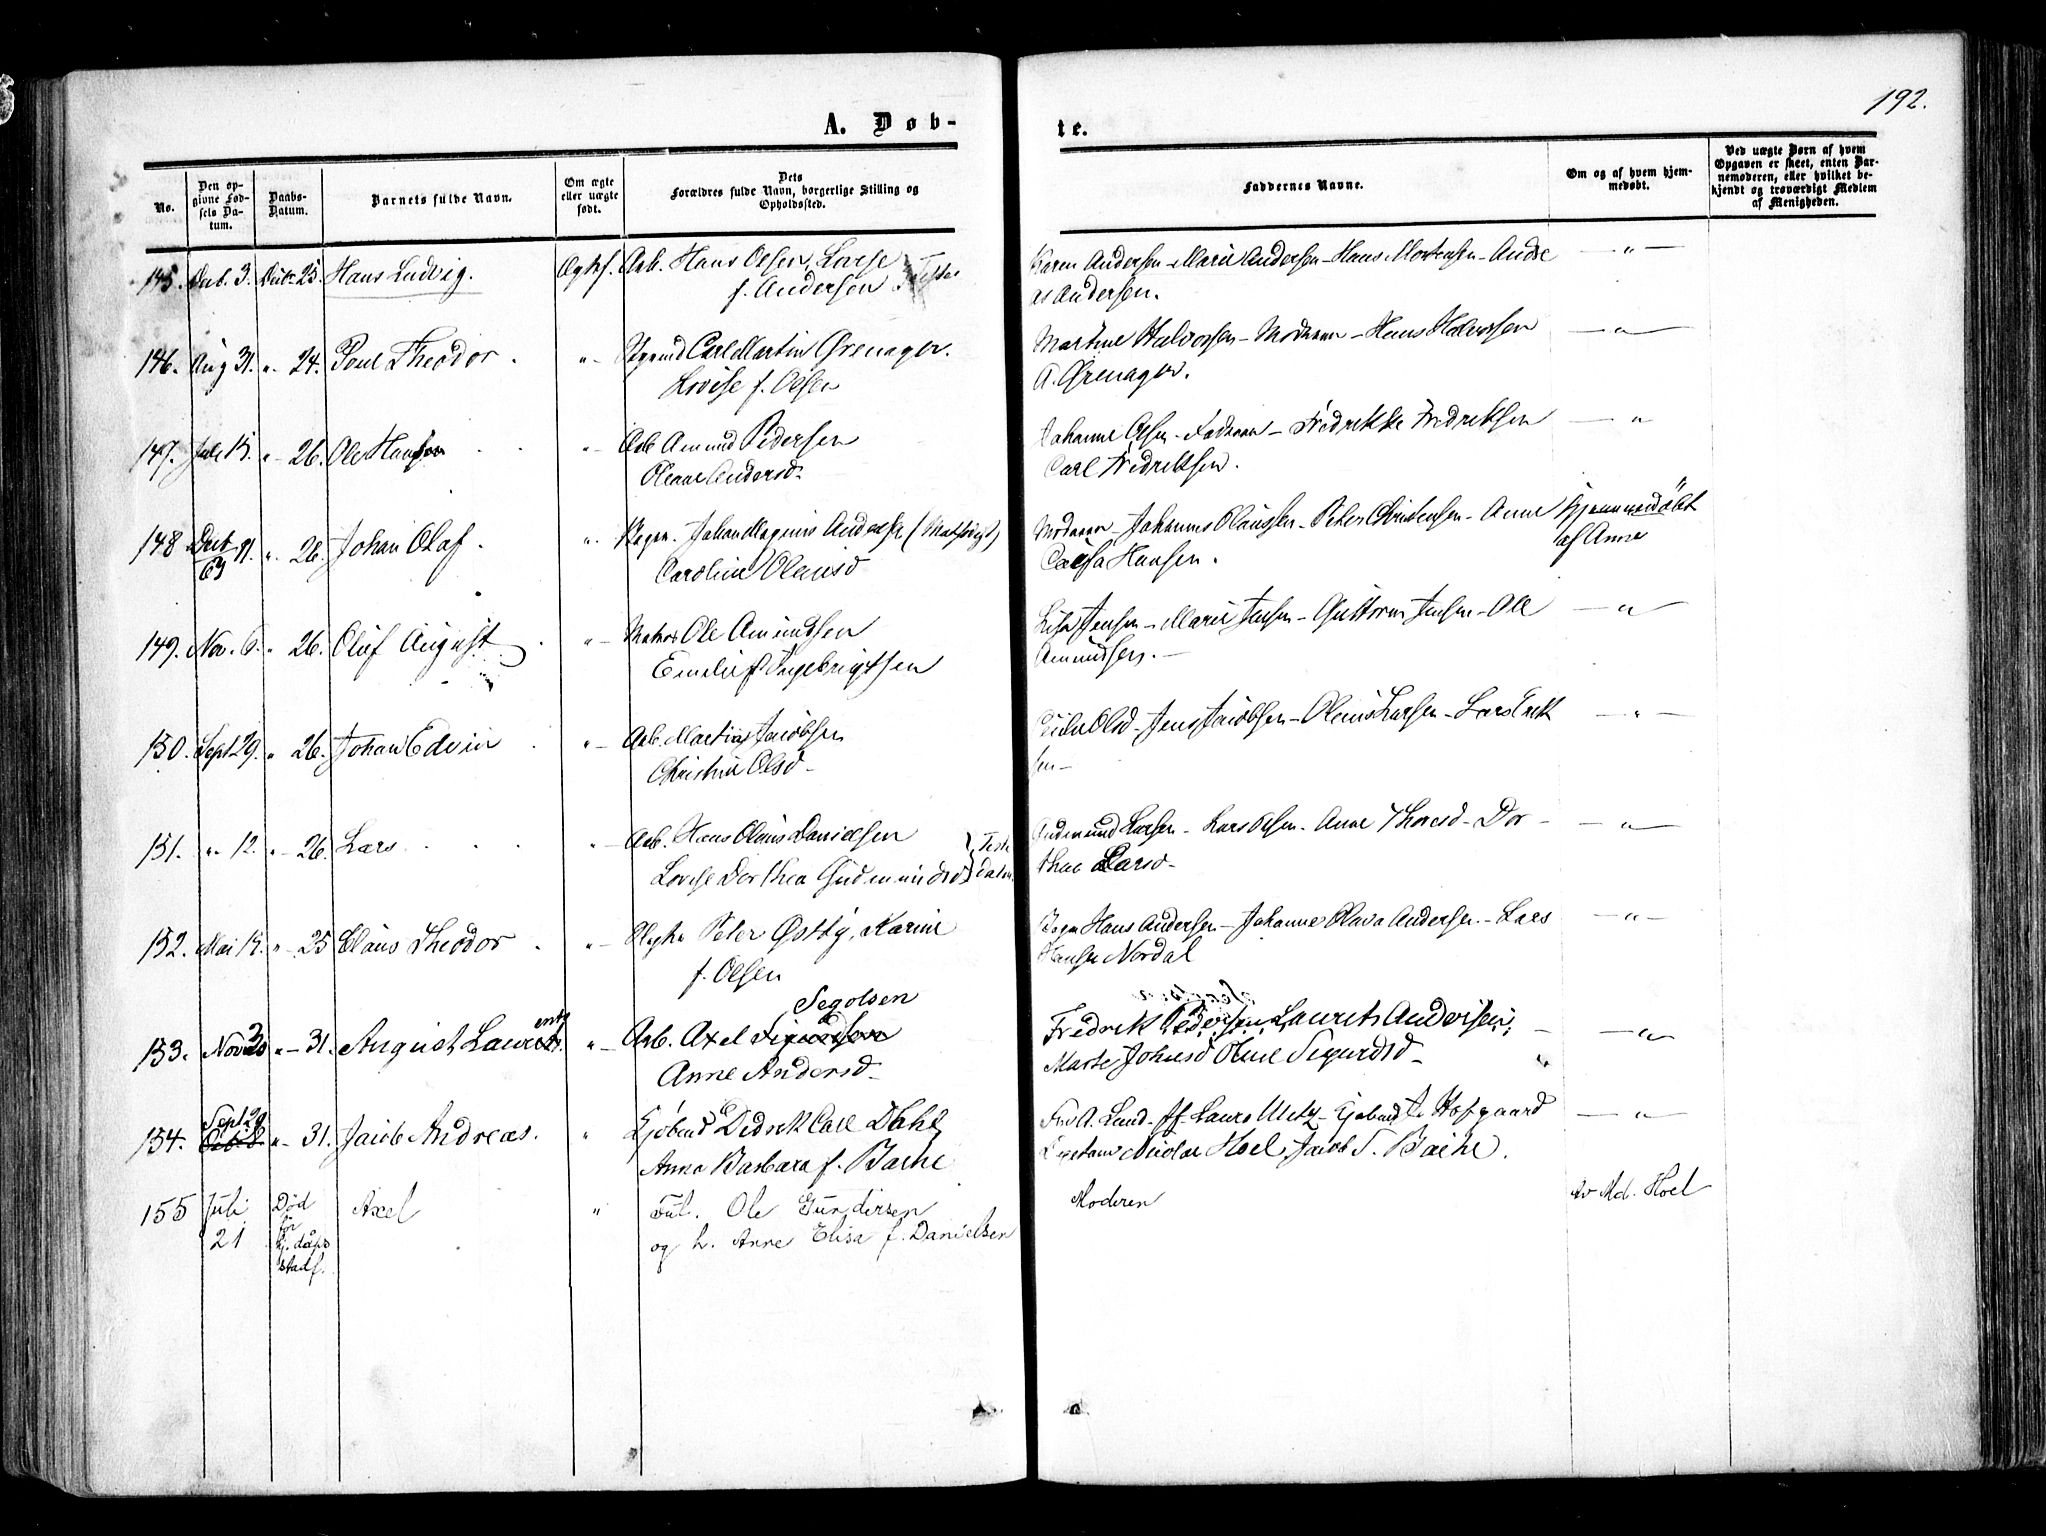 192.
A. Døb-
te.
No.
Den op-
givne Fød-
sels Da-
tum.
Daabs-
Datum.
Barnets fulde Navn.
Om ægte
eller uægte
født.
Dets
Forældres fulde Navn, borgerlige Stilling og
Opholdssted.
Faddernes Navne.
Om og af hvem hjem-
medøbt.
Ved uægte Børn af hvem
Opgaven er skeet, enten Bar-
nemoderen, eller hvilket be-
kjendt og troværdigt Medlem
af Menigheden.
145. 3. 25. Hans Ludvig. Arb. Hans Olsen, Lovise
f. Andersen
Karen Andersen - Marie Andersen - Hans Mortensen - Andre
as Andersen. — " —
146. Aug 31. " 24. Poul Theodor. " Carl Martin Grenager.
Lovise f. Olsen
Martine Halvorsen - Moderen - Hans Halvorsen
A. Grenager. — " —
147. " 26. Ole Hansen " Arb Amund Pedersen
Olene Andersd.
Johanne Olsen - Faderen - Fredrikke Fredriksen
Carl Fredriksen. — "
148 " 26. Johan Olaf. " Johan Magnus Anderse
Caroline Olausd
Moderen Johannes Olaussen - Peter Christensen - Anne
Hansen.
Hjemmedøbt
af Anne
149. Nov. 6. " 26. Oluf August " Matros Ole Amundsen
Emelie f. Ingebrigtsen
Jensen - Marie Jensen - Guttorm Jensen - Ole
Amundsen. — " —
150. Sept 29. " 26. Johan Edvin " Arb. Martin Jacobsen
Christine Olsd
Olsd - Jens Jacobsen - Olaus Larsen - Lars Erik
sen — " —
151. " 12. " 26. Lars " Arb. Hans Olaus Danielsen
Lovise Dorthea Gudmundsd
Gudmund Larsen - Lars Olsen - Anne Thoresd - Dor-
thae Larsd — " —
152. Mai " 25 Claus Theodor " Peter Østby, Karine
f. Olsen
Hans Andersen - Johanne Olava Andersen - Lars
Hansen Nordal — " —
Segolsen
153. Nov 30 " 31. August Laurentz. " Arb. Axel Sigurdsen
Anne Andersd
Fredrik Pedersen, Laurits Andersen,
Marte Johnsd Oline Sigurdsd — " —
154. Sept 29 " 31. Jacob Andreas. " Kjøbmd Didrik Carl Dahl
Anna Barbara f. Bache
Fru A. Lund - Laura Metz - Kjøbmd Hofgaard
Nicolai Hoel, Jacob S. Bache. — " —
155 Juli
21
Død
før
kj. dåps
stadf.
Axel " Ful. Ole Gundersen
og h. Anne Elisa f. Danielsen
Moderen
Av Md. Hoel